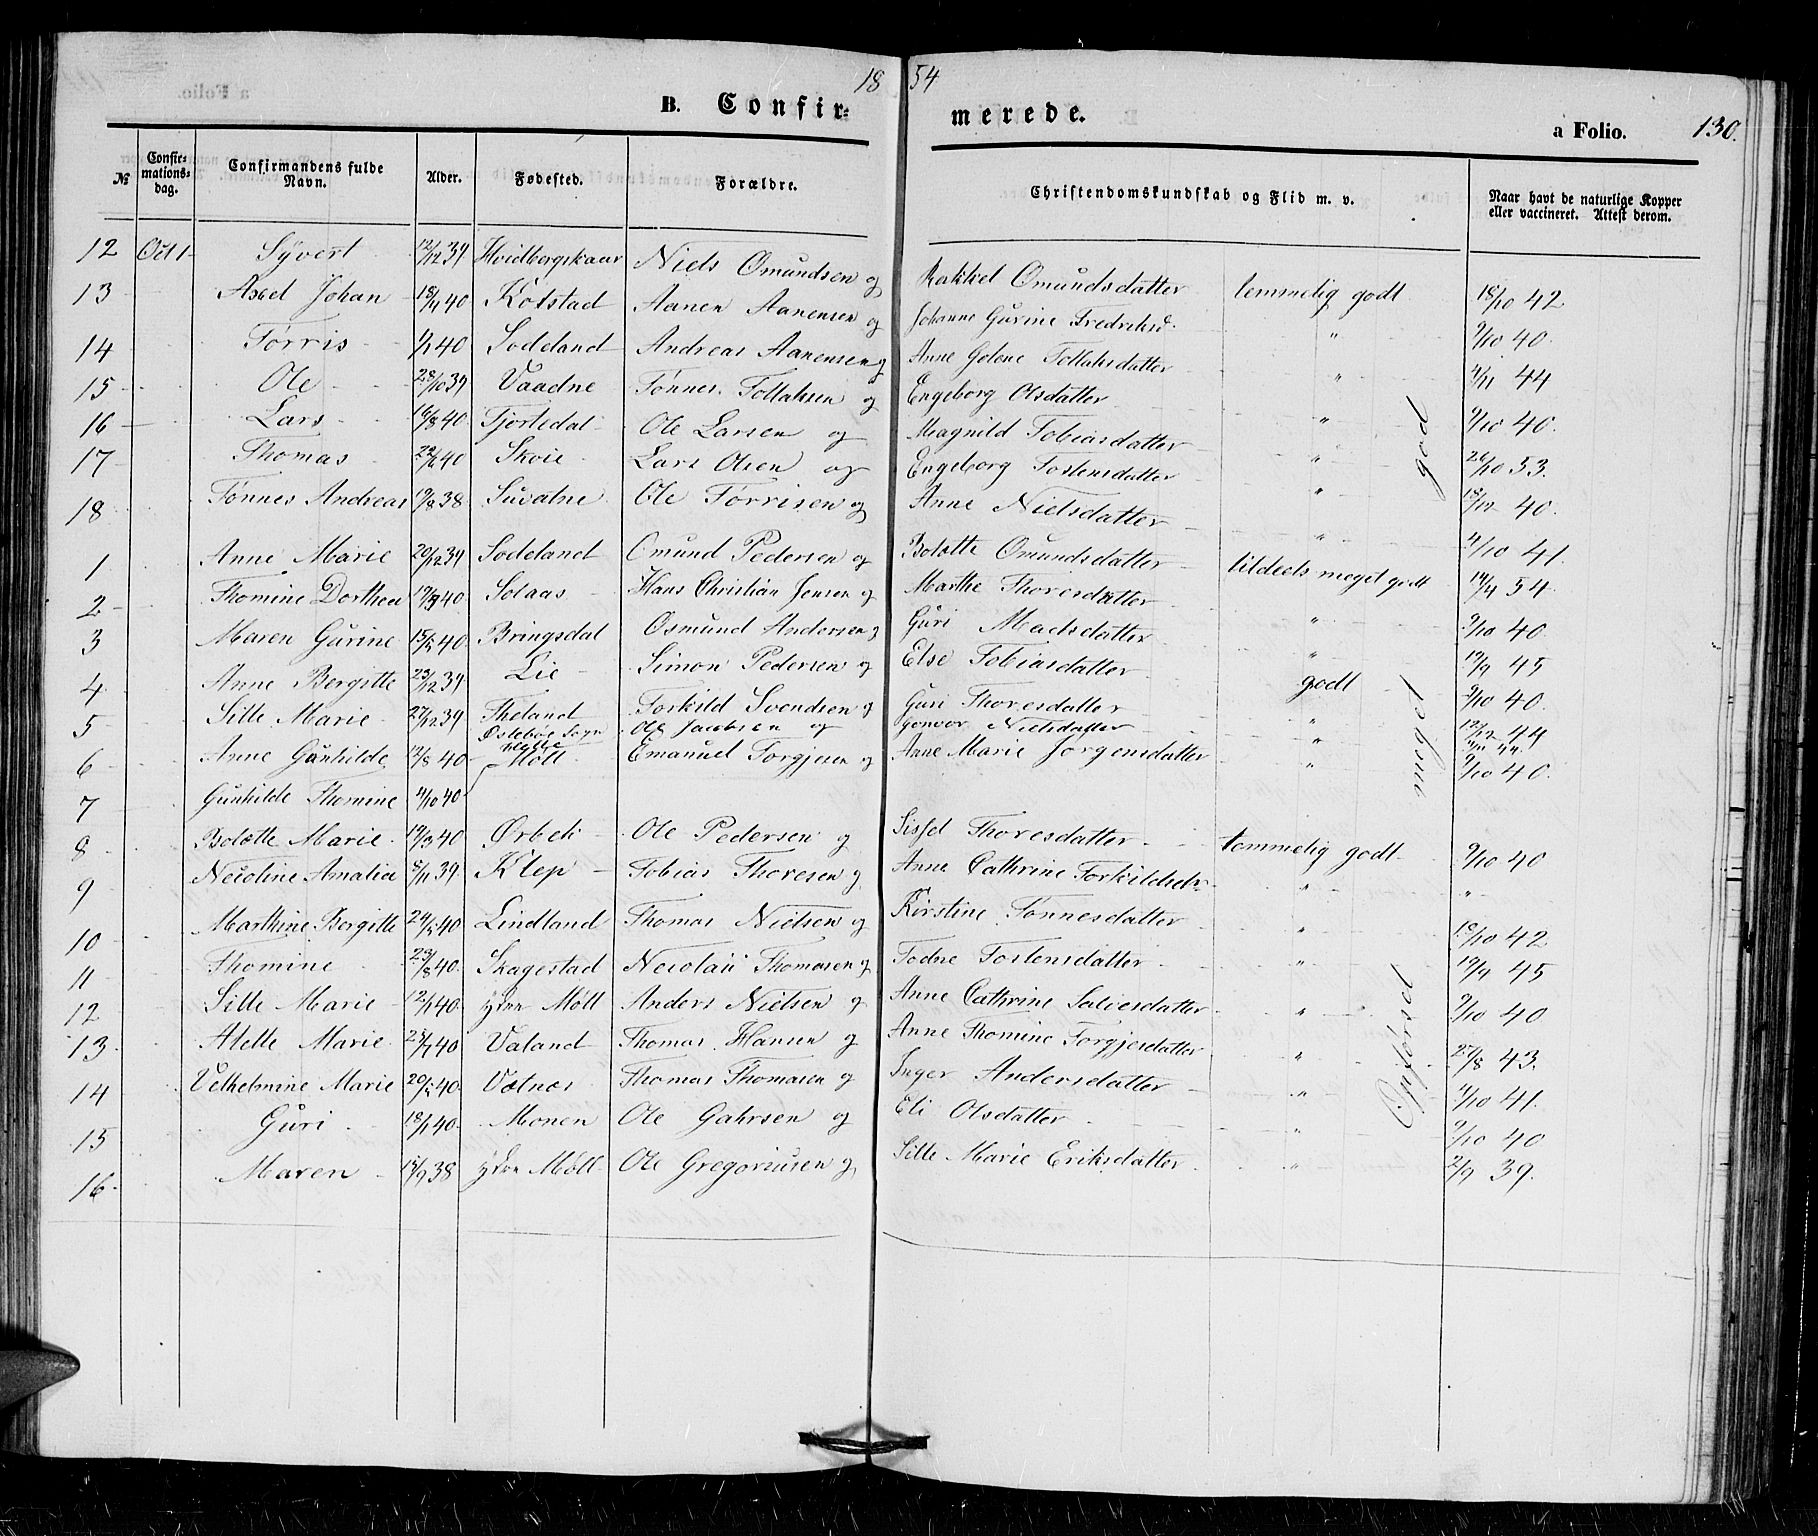 1854
B. Confirmerede.
a Folio. 130.
№ Confirmationsdag. Confirmandens fulde Navn. Alder. Fødested. Forældre. Christendomskundskab og Flid m. v. Naar havt de naturlige Kopper eller vaccineret. Attest derom.
12 Oct 1 Syvert 12/12 39 Hvidbergskaar Niels Omundsen og Rakkel Omundsdatter temmelig godt 18/10 42
13 Axel Johan 18/4 40 Kotstad Aanen Aanensen og Johanne Gurine Fredriksd. " 9/10 40
14 Tørris 40 Sodeland Andreas Aanensen og Anne Gelene Tollaksdatter " 4/11 44
15 Ole 28/10 39 Vaadne Tønnes Tollaksen og Engeborg Olsdatter " 9/10 40.
16 Lars 16/8 40 Tjortedal Ole Larsen og Magnild Tobiasdatter " 26/10 53.
17 Thomas 40 Skoie Lars Olsen og Engeborg Tostensdatter " 18/12 40.
18 Tønnes Andreas 19/8 38 Suvatne Ole Tørrisen og Anne Nielsdatter " 4/10 41.
1 Anne Marie 20/12 39 Sodeland Omund Pedersen og Bolette Omundsdatter tildeels meget godt 19/4 54.
2 Thomine Dorthea 40 Solaas Hans Christian Jensen og Marthe Thoresdatter " 9/10 40
3 Maren Gurine 40 Bringsdal Osmund Andersen og Guri Madsdatter " 19/9 45
4 Anne Bergitte 23/12 39 Lie Simon Pedersen og Else Tobiasdatter godt 9/10 40
5 Sille Marie 27/12 39 Theland Torkild Svendsen og Guri Thoresdatter " 12/12 44
Østebøe Sogn Ole Jacobsen og Gonvor Nielsdatter
6 Anne Gunhilde 12/8 40 Møll Emanuel Torgjersen og Anne Marie Jørgensdatter " 9/10 40.
7 Gunhilde Thomine 4/10 40
8 Bolette Marie 19/3 40 Ørbek Ole Pedersen og Sissel Thoresdatter temmelig godt 9/10 40
9 Necoline Amalia 8/11 39 Klep Tobias Thoresen og Anne Cathrine Torkildsdtr " "
10 Marthine Bergitte 40 Lindland Thomas Nielsen og Kirstine Tønnesdatter " 18/10 42
11 Thomine 23/8 40 Skagestad Necolaii Thomasen og Todne Tostensdatter " 19/9 45
12 Sille Marie 40 Ydre Møll Anders Nielsen og Anne Cathrine Salvesdatter " 9/10 40
13 Alette Marie 40 Valand Thomas Hansen og Anne Thomine Torgjersdatter " 27/8 43.
14 Velhelmine Marie 40 Vatnes Thomas Thomasen og Inger Andersdatter " 4/10 41.
15 Guri 40 Monen Ole Gahrsen og Eli Olsdatter " 9/10 40
16 Maren 15/9 38 Ydre Møll Ole Gregoriusen og Sille Marie Eriksdatter " 2/9 39.
Opførsel meget god